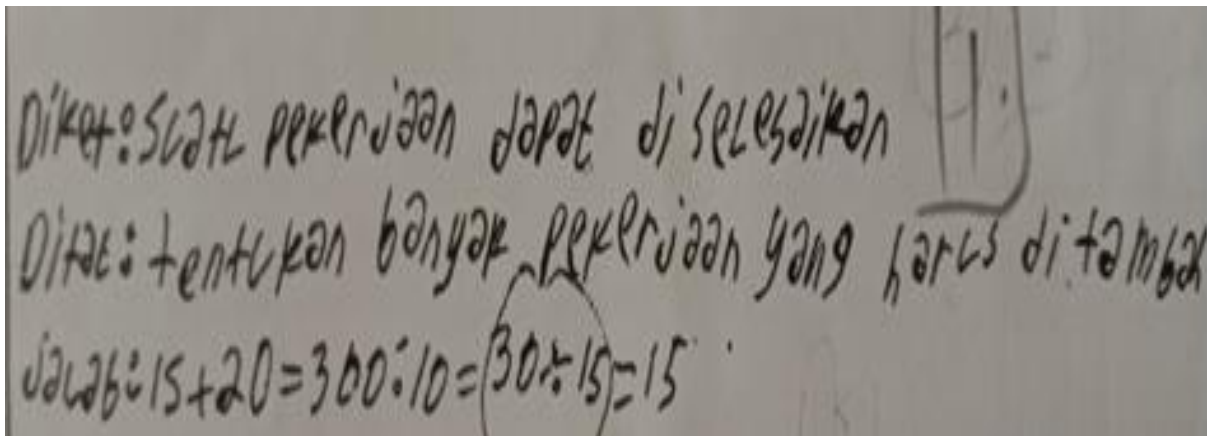 Diket: Suatu pekerjaan dapat di selesaikan
Ditat: tentukan banyak pekerjaan yang harus di tambah
Jawab: 15+20=300:10=30÷15=15
1.